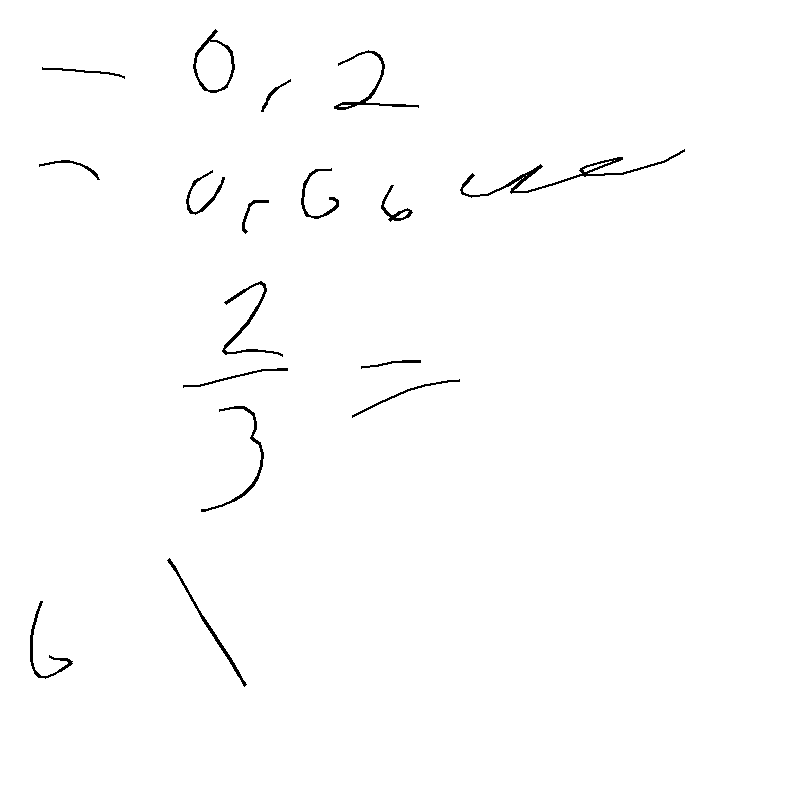 - 0,2
- 0,66
2
3 =
6 \